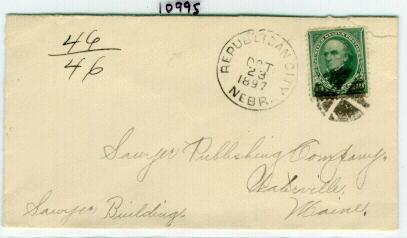 10995
46
46
REPUBLICAN CITY
OCT
23
1897
NEBR.
Sawyer Publishing Company.
Waterville,
Sawyer Building. Maine.